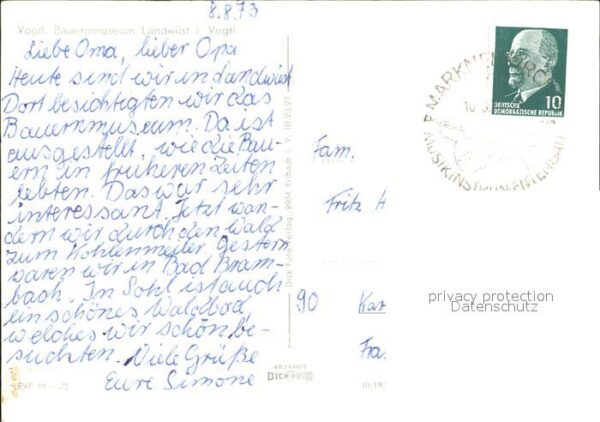 8.8.73
Vogtl. Bauernmuseum Landwüst i. Vogtl.
Liebe Oma, lieber Opa
Heute sind wir in Landwüst
Dort besichtigten wir das
Bauernmuseum. Da ist
ausgestellt, wie die Bau-
ern in früheren Zeiten
lebten. Das war sehr
interessant. Jetzt wan-
dern wir durch den Wald
zum Kohlenmeiler gestern
waren wir in Bad Bram-
bach. In Sohl ist auch
ein schönes Waldbad,
welches wir schon be-
suchten. Viele Grüße
Eure Simone
EVP M -.25
III 23 27
MARKNEUKIRCHEN
MUSIKINSTRUMENTENBAU
10
DEUTSCHE
DEMOKRATISCHE REPUBLIK
Fam.
Fritz H
90 Kar
Fra
privacy protection
Datenschutz
DICK